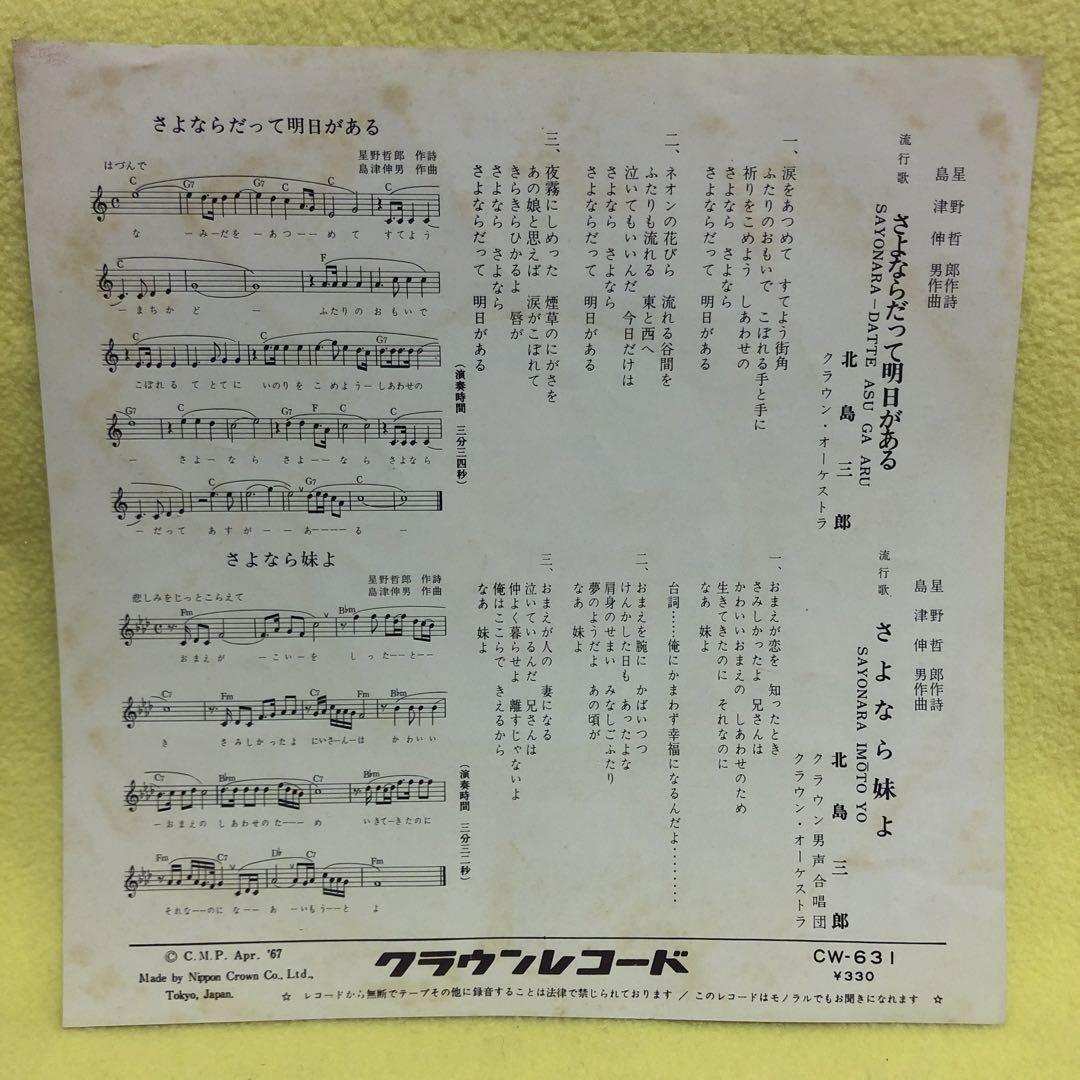 星野哲郎 作詩
島津伸男 作曲
流行歌
さよならだって明日がある
SAYONARA-DATTE ASU GA ARU
北島三郎
クラウン・オーケストラ
一、涙をあつめて すてよう街角
ふたりのおもいで こぼれる手と手に
祈りをこめよう しあわせの
さよなら さよなら
さよならだって 明日がある
二、ネオンの花びら 流れる谷間を
ふたりも流れる 東と西へ
泣いてもいいんだ 今日だけは
さよなら さよなら
さよならだって 明日がある
三、夜霧にしめった 煙草のにがさを
あの娘と思えば 涙がこぼれて
きらきらひかるよ 唇が
さよなら さよなら
さよならだって 明日がある
(演奏時間 三分三四秒)
さよならだって明日がある
星野哲郎 作詩
島津伸男 作曲
はづんで
C G7 C G7 C
な ーみーだを ーあつーーめて すてよう
C F
ーまちかど ー ふたりの おもいで
C
こぼれる て とてに いのりを こ めようーしあわせの
G7 C G7 F C
ー さよーなら さよーーなら さよなら
G7 C
ーだって あすがーーあーーーる ー
星野哲郎 作詩
島津伸男 作曲
流行歌
さよなら妹よ
SAYONARA IMŌTO YO
北島三郎
クラウン男声合唱団
クラウン・オーケストラ
一、おまえが恋を 知ったとき
さみしかったよ 兄さんは
かわいいおまえの しあわせのため
生きてきたのに それなのに
なあ 妹よ
台詞……俺にかまわず幸福になるんだよ………
二、おまえを腕に かばいつつ
けんかした日も あったよな
肩身のせまい みなしごふたり
夢のようだよ あの頃が
なあ 妹よ
三、おまえが人の 妻になる
泣いているんだ 兄さんは
仲よく暮らせよ 離すじゃないよ
俺はここらで きえるから
なあ 妹よ
(演奏時間 三分三二秒)
さよなら妹よ
星野哲郎 作詩
島津伸男 作曲
悲しみをじっとこらえて
Fm B♭m
おまえが ーこいーを しったーーとーー
C7 Fm B♭m
き さみしかったよ にいさーんーは かわいい
C7 B♭m C7 B♭m
ーおまえの しあわせのたーーめ いきてーきたのに
Fm C7 D♭ C7 Fm
それなーーのに なーー あ ーいもうーーと よ
© C.M.P. Apr. '67
Made by Nippon Crown Co., Ltd.,
Tokyo, Japan.
クラウンレコード
CW-631
¥330
☆ レコードから無断でテープその他に録音することは法律で禁じられております / このレコードはモノラルでもお聞きになれます ☆